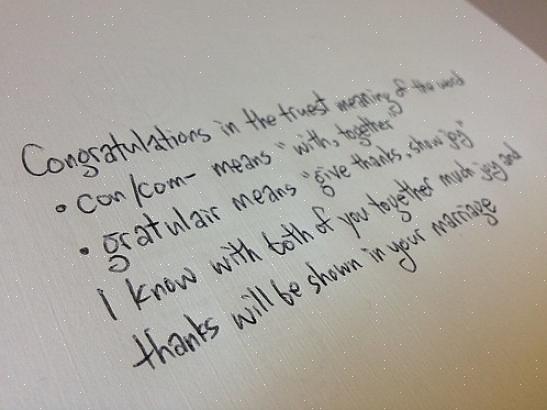 Congratulations in the truest meaning of the word
• con/com- means "with, together"
• gratulair means "give thanks, show joy"
I know with both of you together much joy and
thanks will be shown in your marriage